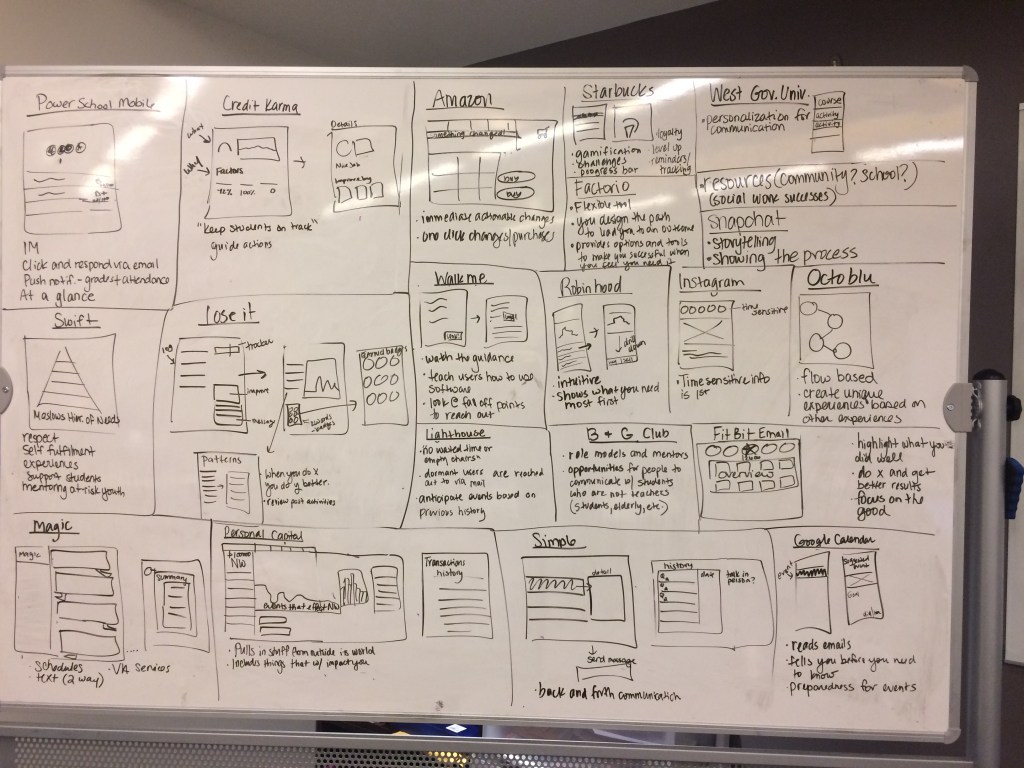 Power School Mobile
IM
Click and respond via email
Push notif. - grades + attendance
At a glance
Credit Karma
what
why
Factors
100%
0
Details
"Keep students on track"
guide actions
Amazon
something changed!
buy
buy
· immediate actionable changes
· one click changes/purchases
Starbucks
· gamification
· challenges
· progress bar
· loyalty
level up
reminders/
tracking
Factorio
· Flexible tool
· you design the path
to lead you to an outcome
· provides options and tools
to make you successful when
you feel you need it
West Gov. Univ.
· personalization for
communication
course
activity
activity
· resources (community? school?)
(social work successes)
Snapchat
· Storytelling
· Showing the process
Swift
Maslows Hier. of Needs
respect
self fulfilment
experiences
· support students
mentoring at-risk youth
Lose it
log
tracker
improve
message
earned badges
awards
badges
Patterns
· When you do x
you do y better.
· review past activities
Walk me
· watch the guidance
· teach users how to use
software
· look @ fall off points
to reach out
Robinhood
drill
down
· intuitive
· shows what you need
most first
Instagram
time
sensitive
· Time sensitive info
is 1st
Octoblu
· flow based
· create unique
experiences based on
other experiences
Lighthouse
· No wasted time or
empty chairs
· dormant users are reached
out to via mail
· anticipate events based on
previous history
B & G Club
· role models and mentors
· opportunities for people to
communicate w/ students
who are not teachers
(students, elderly, etc.)
FitBit Email
overviews
· highlight what you
did well
· do x and get
better results
· focus on the
good
Magic
Magic
Summary
· schedules
· text (2 way)
· VA services
Personal Capital
NW
events that effect NW
Transactions
history
· Pulls in stuff from outside is world
· Includes things that w/ impact you
Simple
detail
send message
history
date
talk in
person?
· back and forth communication
Google Calendar
event
suggested
Goal
· reads emails
· tells you before you need
to know
· preparedness for events